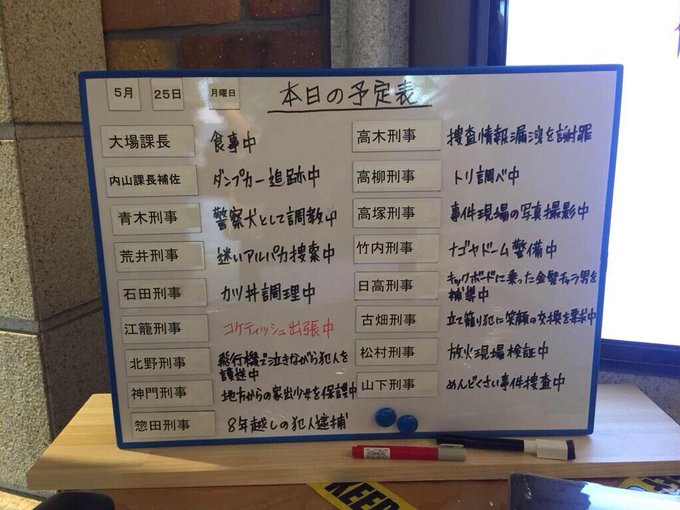 5月 25日 月曜日 本日の予定表
大場課長 食事中
内山課長補佐 ダンプカー追跡中
青木刑事 警察犬として調教中
荒井刑事 迷いアルパカ捜索中
石田刑事 カツ丼調理中
江籠刑事 コケティッシュ出張中
北野刑事 飛行機で泣きながら犯人を
護送中
神門刑事 地方からの家出少女を保護中
惣田刑事 8年越しの犯人逮捕
高木刑事 捜査情報漏洩を謝罪
高柳刑事 トリ調べ中
高塚刑事 事件現場の写真撮影中
竹内刑事 ナゴヤドーム警備中
日高刑事 キックボードに乗った金髪チャラ男を
捕獲中
古畑刑事 立て籠り犯に笑顔の交換を要求中
松村刑事 放火現場検証中
山下刑事 めんどくさい事件捜査中
KEEP